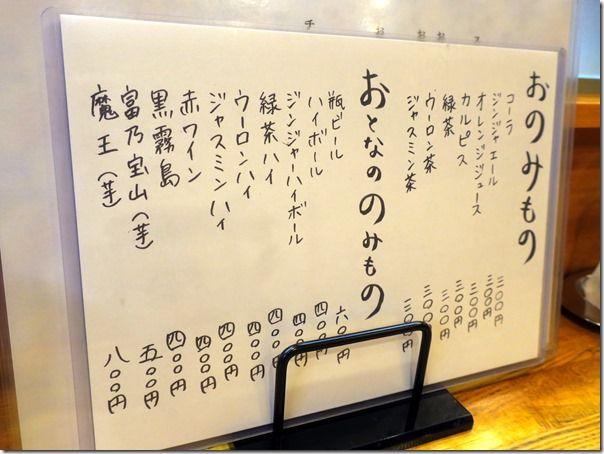 おのみもの
コーラ 三〇〇円
ジンジャエール 三〇〇円
オレンジジュース 三〇〇円
カルピス 三〇〇円
緑茶 三〇〇円
ウーロン茶 三〇〇円
ジャスミン茶 三〇〇円
おとなののみもの
瓶ビール 六〇〇円
ハイボール 四〇〇円
ジンジャーハイボール 四〇〇円
緑茶ハイ 四〇〇円
ウーロンハイ 四〇〇円
ジャスミンハイ 四〇〇円
赤ワイン 四〇〇円
黒霧島 四〇〇円
富乃宝山(芋) 五〇〇円
魔王(芋) 八〇〇円